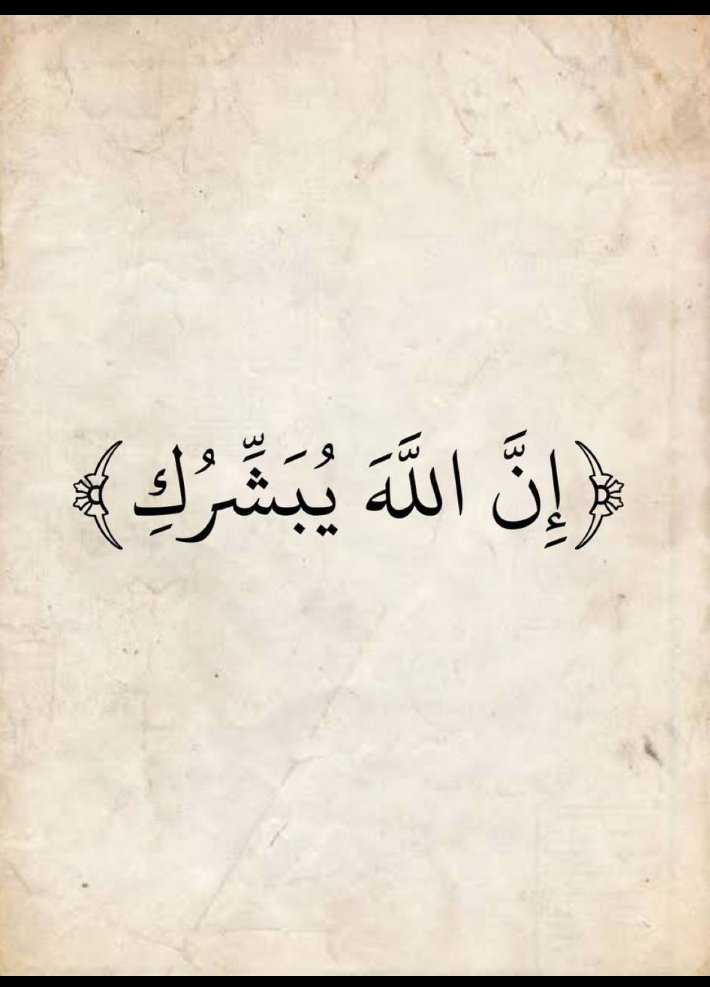 ﴿ إِنَّ اللَّهَ يُبَشِّرُكِ ﴾